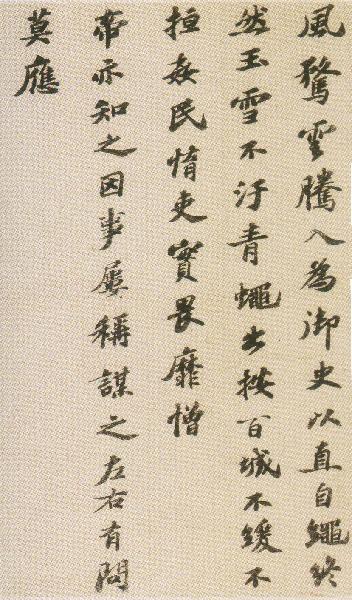 風騖雲騰入為御史以直自繩終
然玉雪不汙青蠅出按百城不緩不
姦民惰吏實畏靡憎
帝亦知之因事屢稱謀之左右有問
莫應